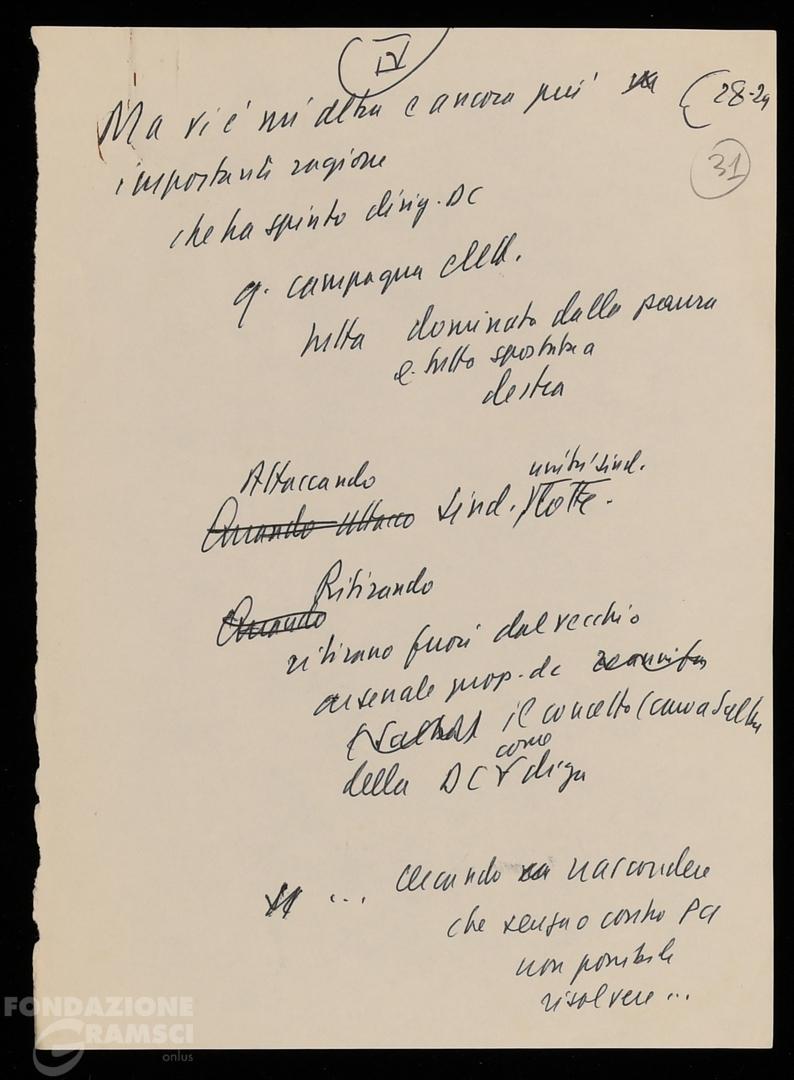 IV
Ma vi è un'altra e ancora più (28-29
31
importante ragione
che ha spinto dirig. DC
q. campagna elett.
tutta dominata dalla paura
e tutta spostata a
destra
Attaccando unità sind.
Quando attacco sind. lotte.
Ritirando
Quando
ritirano fuori dal vecchio
arsenale prop. dc
il concetto (caro a
come
della DC diga
... cercando nascondere
che senza o contro PCI
non possibile
risolvere...
FONDAZIONE
GRAMSCI
onlus